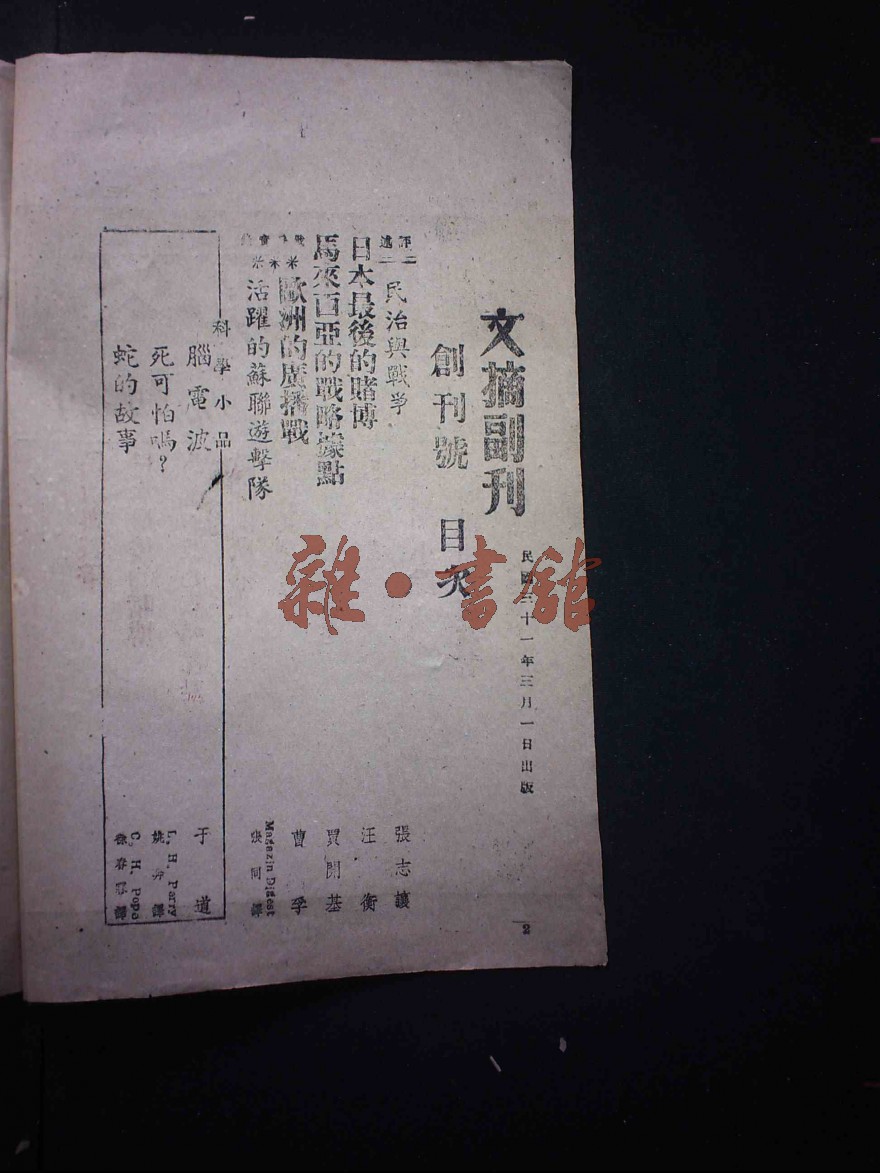 文摘副刊
民國三十一年三月一日出版
創刊號 目次
評述
民治與戰爭 張志讓
日本最後的賭博 汪衡
馬來西亞的戰略據點 賈開基
歐洲的廣播戰 曹孚
活躍的蘇聯遊擊隊 Magazin Digest 張同譯
科學小品
腦電波 于道
死可怕嗎？ L. H. Parry 姚 譯
蛇的故事 C. H. Popa 徐春 譯
2
雜·書館